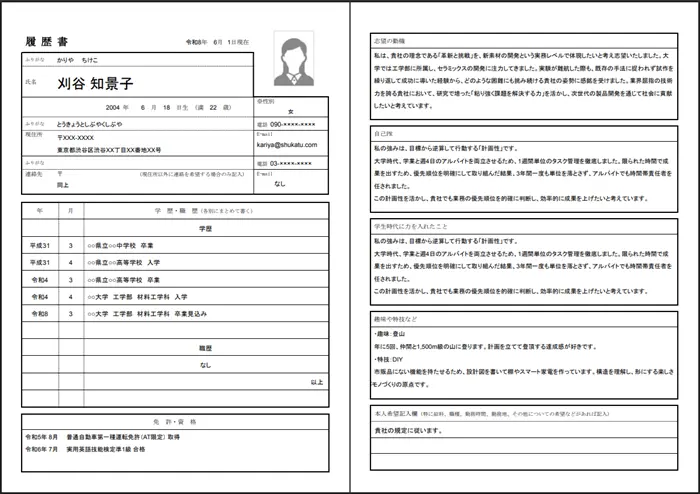 履歴書
令和8年 6月 1日現在
ふりがな かりや ちけこ
氏名 刈谷 知景子
2004 年 6 月 18 日生 (満 22 歳)
※性別
女
ふりがな とうきょうとしぶやくしぶや
電話 090-****-****
現住所 〒XXX-XXXX
東京都渋谷区渋谷XX丁目XX番地XX号
E-mail
kariya@shukatu.com
ふりがな
電話 03-****-****
連絡先 〒 (現住所以外に連絡を希望する場合のみ記入)
同上
E-mail
なし
年 月 学 歴・職 歴 (各別にまとめて書く)
学歴
平成31 3 ○○県立○○中学校 卒業
平成31 4 ○○県立○○高等学校 入学
令和4 3 ○○県立○○高等学校 卒業
令和4 4 ○○大学 工学部 材料工学科 入学
令和8 3 ○○大学 工学部 材料工学科 卒業見込み
職歴
なし
以上
免 許・資 格
令和5年 8月 普通自動車第一種運転免許(AT限定) 取得
令和6年 7月 実用英語技能検定準1級 合格
志望の動機
私は、貴社の理念である「革新と挑戦」を、新素材の開発という実務レベルで体現したいと考え志望いたしました。大
学では工学部に所属し、セラミックスの開発に注力してきました。実験が難航した際も、既存の手法に捉われず試作を
繰り返して成功に導いた経験から、どのような困難にも挑み続ける貴社の姿勢に感銘を受けました。業界屈指の技術
力を誇る貴社において、研究で培った「粘り強く課題を解決する力」を活かし、次世代の製品開発を通じて社会に貢献
したいと考えています。
自己PR
私の強みは、目標から逆算して行動する「計画性」です。
大学時代、学業と週4日のアルバイトを両立させるため、1週間単位のタスク管理を徹底しました。限られた時間で成
果を出すため、優先順位を明確にして取り組んだ結果、3年間一度も単位を落とさず、アルバイトでも時間帯責任者を
任されました。
この計画性を活かし、貴社でも業務の優先順位を的確に判断し、効率的に成果を上げたいと考えています。
学生時代に力を入れたこと
私の強みは、目標から逆算して行動する「計画性」です。
大学時代、学業と週4日のアルバイトを両立させるため、1週間単位のタスク管理を徹底しました。限られた時間で成
果を出すため、優先順位を明確にして取り組んだ結果、3年間一度も単位を落とさず、アルバイトでも時間帯責任者を
任されました。
この計画性を活かし、貴社でも業務の優先順位を的確に判断し、効率的に成果を上げたいと考えています。
趣味や特技など
・趣味:登山
年に5回、仲間と1,500m級の山に登ります。計画を立てて登頂する達成感が好きです。
・特技:DIY
市販品にない機能を持たせるため、設計図を書いて棚やスマート家電を作っています。構造を理解し、形にする楽しさ
モノづくりの原点です。
本人希望記入欄 (特に給料、職種、勤務時間、勤務地、その他についての希望などがあれば記入)
貴社の規定に従います。